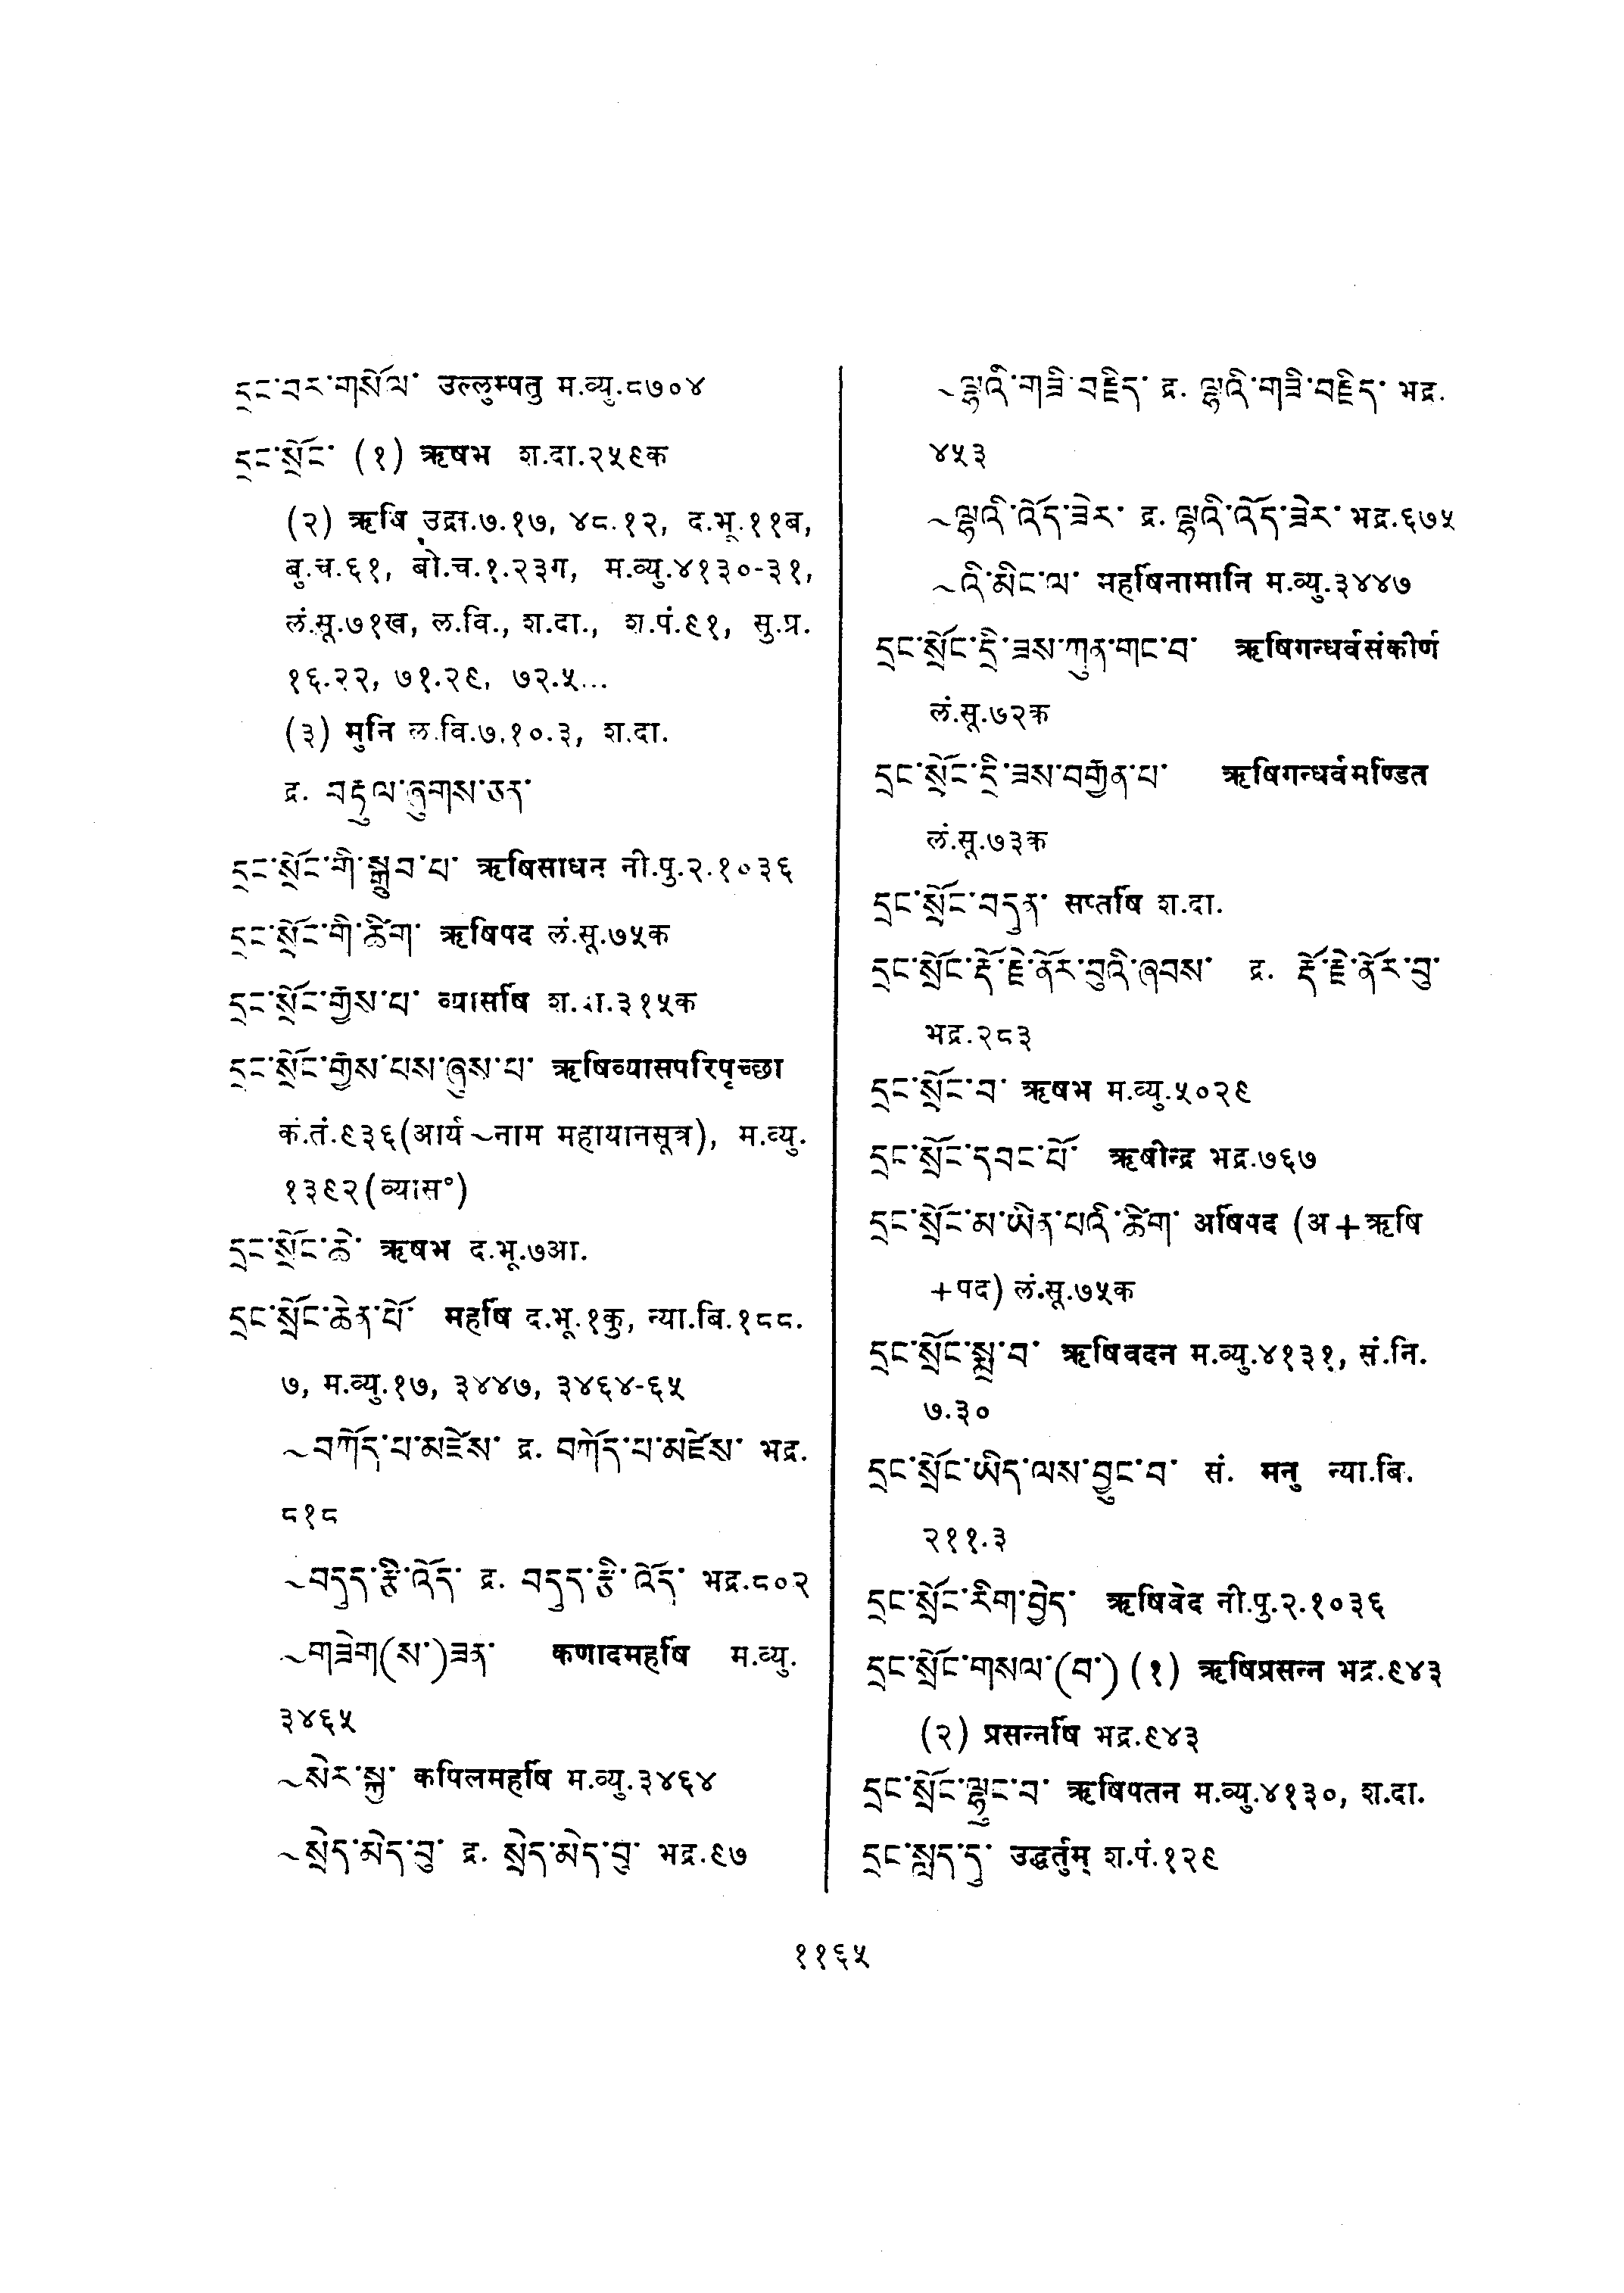 དྲང་བར་གསོལ་ उल्लुम्पतु म.व्यु.८७०४
དྲང་སྲོང་ (१) ऋषभ श.दा.२५९क
(२) ऋषि उद्रा.७.१७, ४८.१२, द.भू.११ब,
बु.च.६१, बो.च.१.२३ग, म.व्यु.४१३०-३१,
लं.सू.७१ख, ल.वि., श.दा., श.पं.९१, सु.प्र.
१६.२२, ७१.२९, ७२.५...
(३) मुनि ल.वि.७.१०.३, श.दा.
द्र. བརྟུལ་ཞུགས་ཅན་
དྲང་སྲོང་གི་སྒྲུབ་པ་ ऋषिसाधन नी.पु.२.१०३६
དྲང་སྲོང་གི་ཚིག་ ऋषिपद लं.सू.७५क
དྲང་སྲོང་རྒྱས་པ་ व्यासर्षि श.दा.३१५क
དྲང་སྲོང་རྒྱས་པས་ཞུས་པ་ ऋषिव्यासपरिपृच्छा
कं.तं.९३६(आर्य ~नाम महायानसूत्र), म.व्यु.
१३९२(व्यास°)
དྲང་སྲོང་ཆེ་ ऋषभ द.भू.७आ.
དྲང་སྲོང་ཆེན་པོ་ महर्षि द.भू.१कु, न्या.बि.१८८.
७, म.व्यु.१७, ३४४७, ३४६४-६५
~བཀོད་པ་མཛེས་ द्र. བཀོད་པ་མཛེས་ भद्र.
८१८
~བདུད་རྩི་འོད་ द्र. བདུད་རྩི་འོད་ भद्र.८०२
~གཟེག(ས་)ཟན་ कणादमहर्षि म.व्यु.
३४६५
~སེར་སྐྱ་ कपिलमहर्षि म.व्यु.३४६४
~སྲེད་མེད་བུ་ द्र. སྲེད་མེད་བུ་ भद्र.९७
~ལྷའི་གཟི་བརྗིད་ द्र. ལྷའི་གཟི་བརྗིད་ भद्र.
४५३
~ལྷའི་འོད་ཟེར་ द्र. ལྷའི་འོད་ཟེར་ भद्र.६७५
~འི་མིང་ལ་ महर्षिनामानि म.व्यु.३४४७
དྲང་སྲོང་དྲི་ཟས་ཀུན་གང་བ་ ऋषिगन्धर्वसंकीर्ण
लं.सू.७२क
དྲང་སྲོང་དྲི་ཟས་བརྒྱན་པ་ ऋषिगन्धर्वमण्डित
लं.सू.७३क
དྲང་སྲོང་བདུན་ सप्तर्षि श.दा.
དྲང་སྲོང་རྡོ་རྗེ་ནོར་བུའི་ཞབས་ द्र. རྡོ་རྗེ་ནོར་བུ་
भद्र.२८३
དྲང་སྲོང་བ་ ऋषभ म.व्यु.५०२९
དྲང་སྲོང་དབང་པོ་ ऋषीन्द्र भद्र.७६७
དྲང་སྲོང་མ་ཡིན་པའི་ཚིག་ अर्षिपद (अ+ऋषि
+पद) लं.सू.७५क
དྲང་སྲོང་སྨྲ་བ་ ऋषिवदन म.व्यु.४१३१, सं.नि.
७.३०
དྲང་སྲོང་ཡིད་ལས་བྱུང་བ་ सं. मनु न्या.बि.
२११.३
དྲང་སྲོང་རིག་བྱེད་ ऋषिवेद नी.पु.२.१०३६
དྲང་སྲོང་གསལ་(བ་) (१) ऋषिप्रसन्न भद्र.९४३
(२) प्रसन्नर्षि भद्र.९४३
དྲང་སྲོང་ལྷུང་བ་ ऋषिपतन म.व्यु.४१३०, श.दा.
དྲང་སླད་དུ་ उद्धर्तुम् श.पं.१२९
११६५